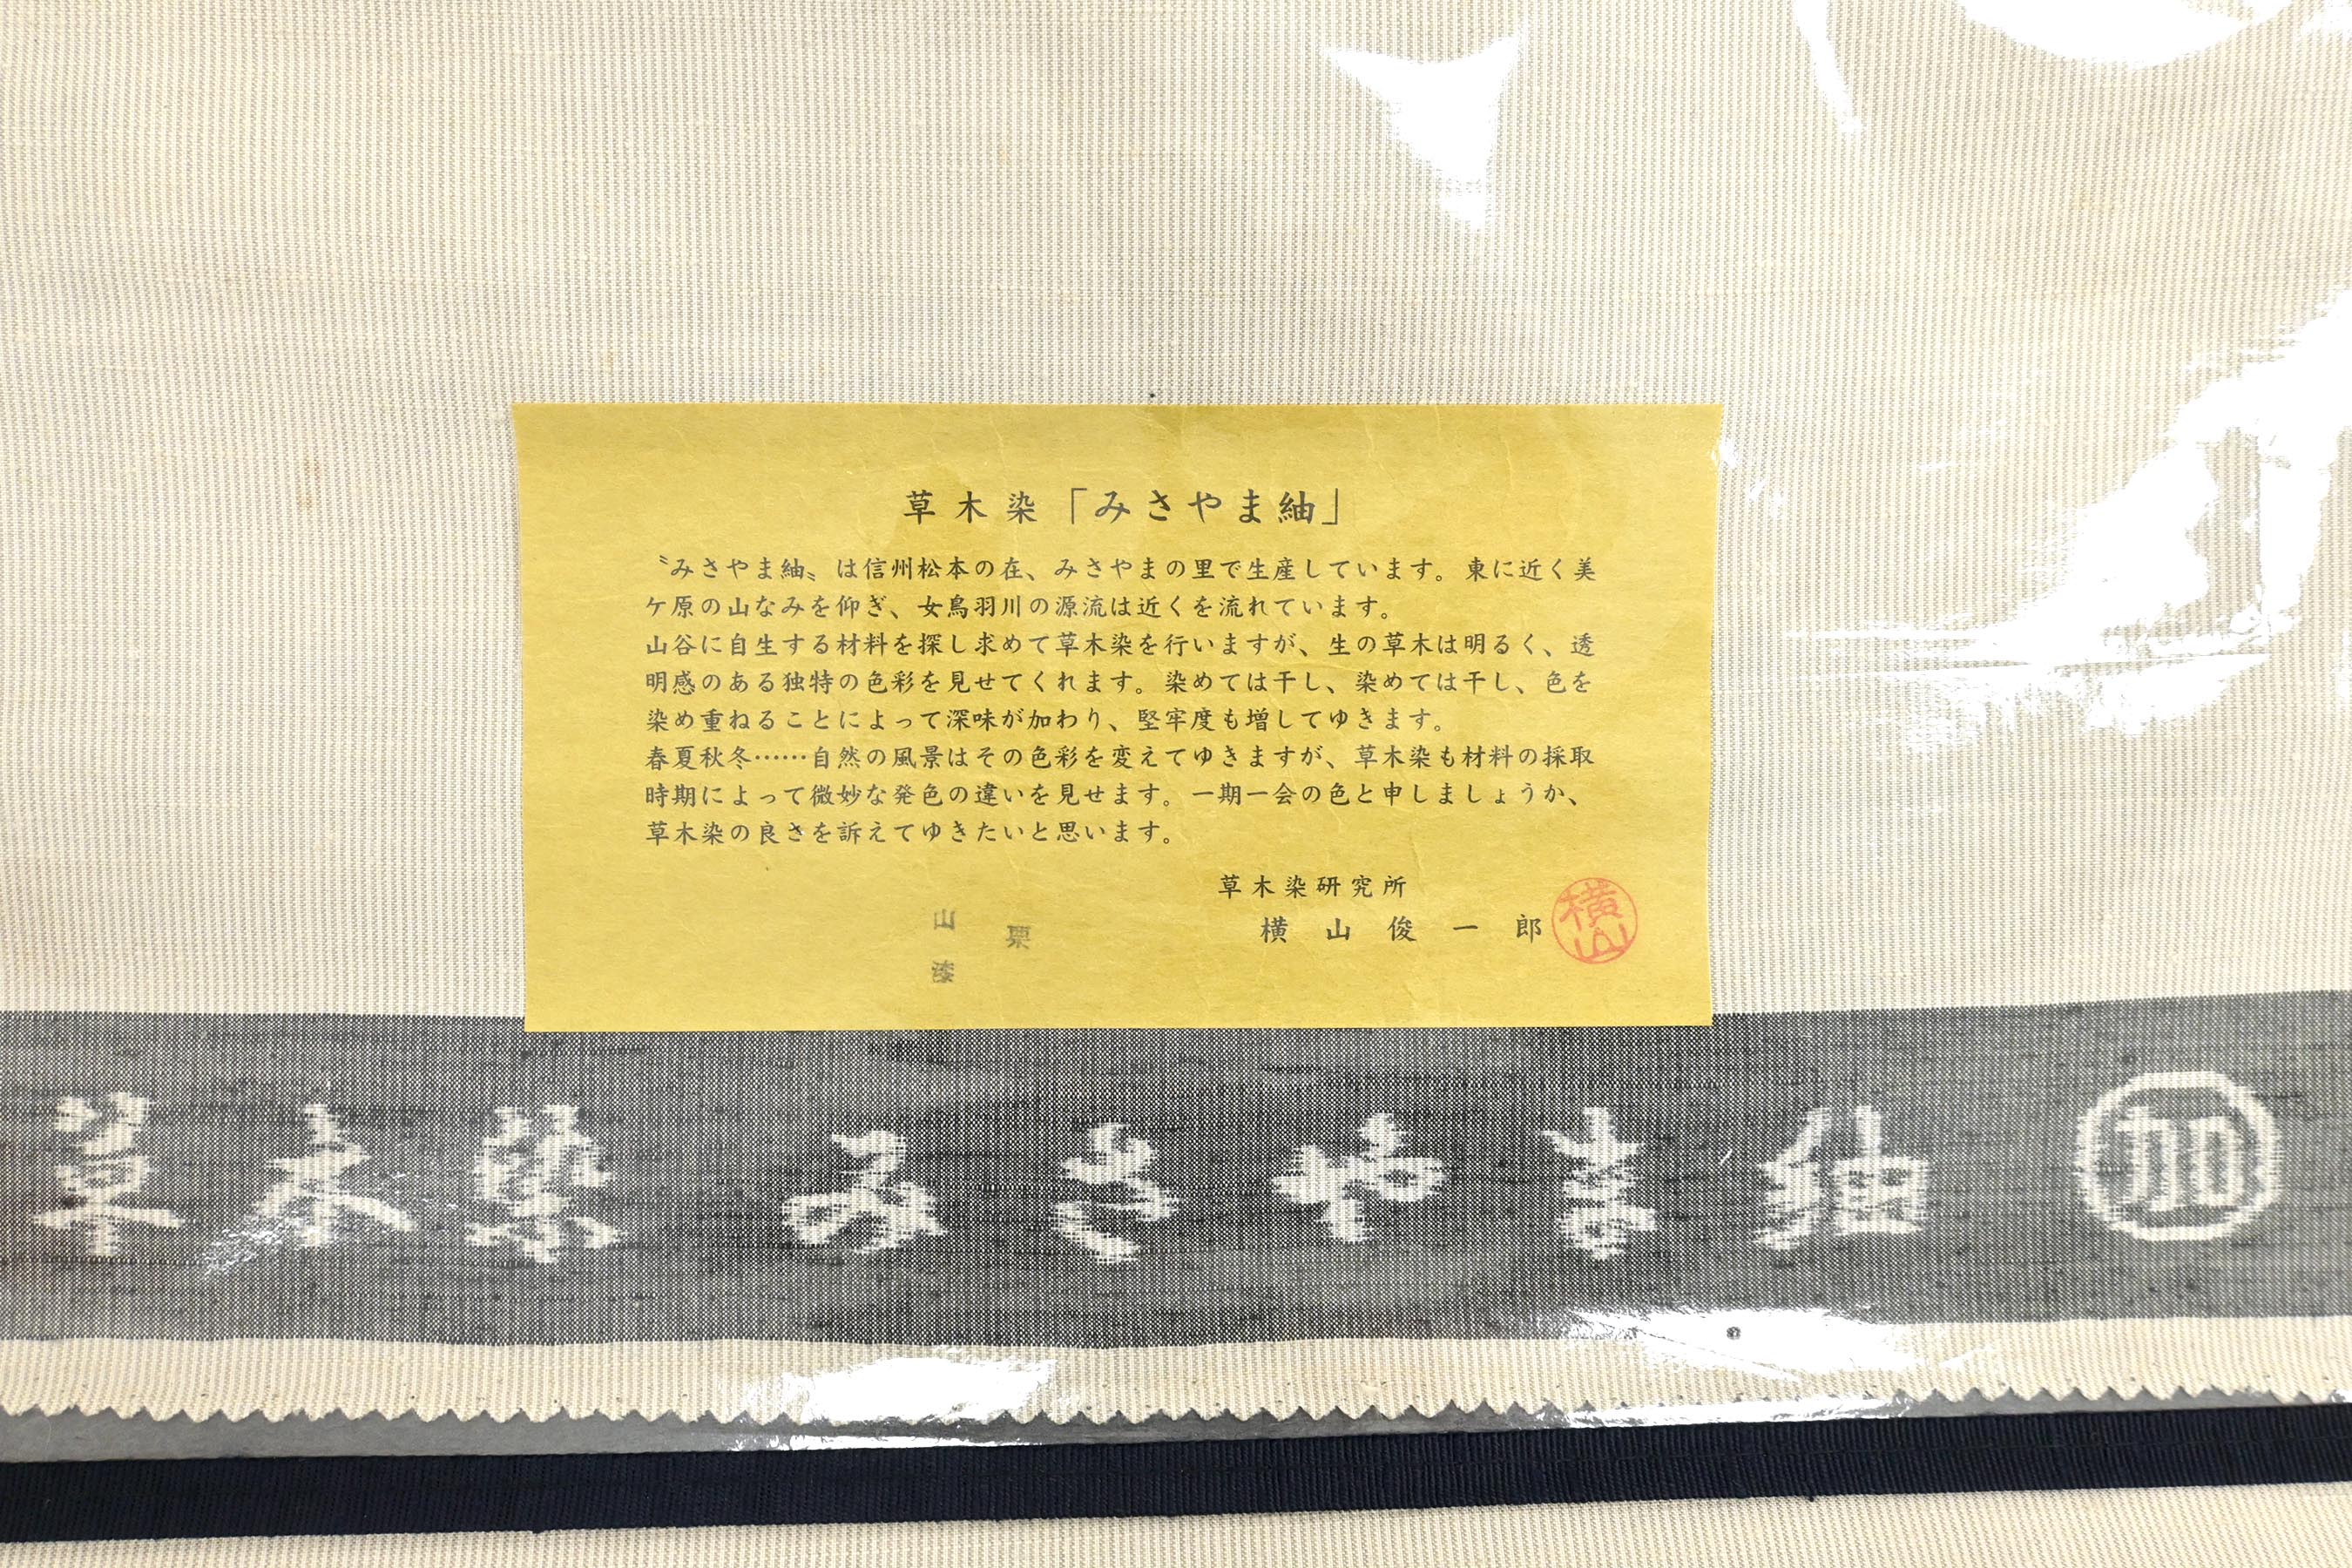 草木染「みさやま紬」
〝みさやま紬〟は信州松本の在、みさやまの里で生産しています。東に近く美
ケ原の山なみを仰ぎ、女鳥羽川の源流は近くを流れています。
山谷に自生する材料を探し求めて草木染を行いますが、生の草木は明るく、透
明感のある独特の色彩を見せてくれます。染めては干し、染めては干し、色を
染め重ねることによって深味が加わり、堅牢度も増してゆきます。
春夏秋冬……自然の風景はその色彩を変えてゆきますが、草木染も材料の採取
時期によって微妙な発色の違いを見せます。一期一会の色と申しましょうか、
草木染の良さを訴えてゆきたいと思います。
草木染研究所
横山俊一郎
横山
栗
山漆
草木染みさやま紬 加